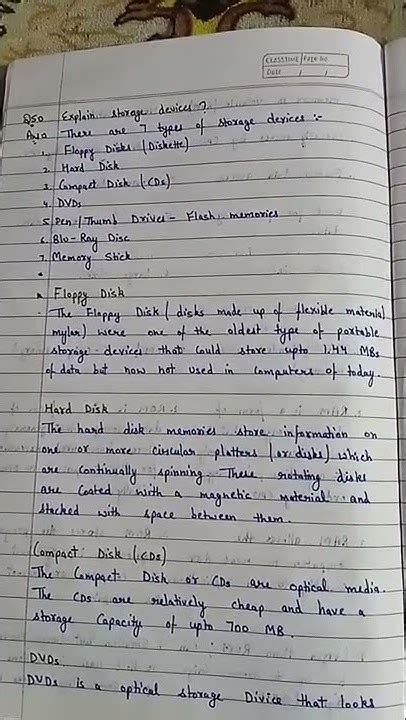 CLASSTIME Page No.
Date / /
Q50 Explain storage devices?
Ans There are 7 types of storage devices :-
1. Floppy Disks (Diskette)
2. Hard Disk
3. Compact Disk (CDs)
4. DVDs
5. Pen / Thumb Drives - Flash memories
6. Blu-Ray Disc
7. Memory Stick
Floppy Disk
The Floppy Disk ( disks made up of flexible material
mylar) were one of the oldest type of portable
storage devices that could store upto 1.44 MBs
of data but now not used in computers of today.
Hard Disk
The hard disk memories store information on
one or more circular platters (or disks) which
are continually spinning. These rotating disks
are coated with a magnetic material and
stacked with space between them.
Compact Disk (CDs)
The Compact Disk or CDs are optical media.
The CDs are relatively cheap and have a
storage capacity of upto 700 MB.
DVDs
DVDs is a optical storage Divice that looks